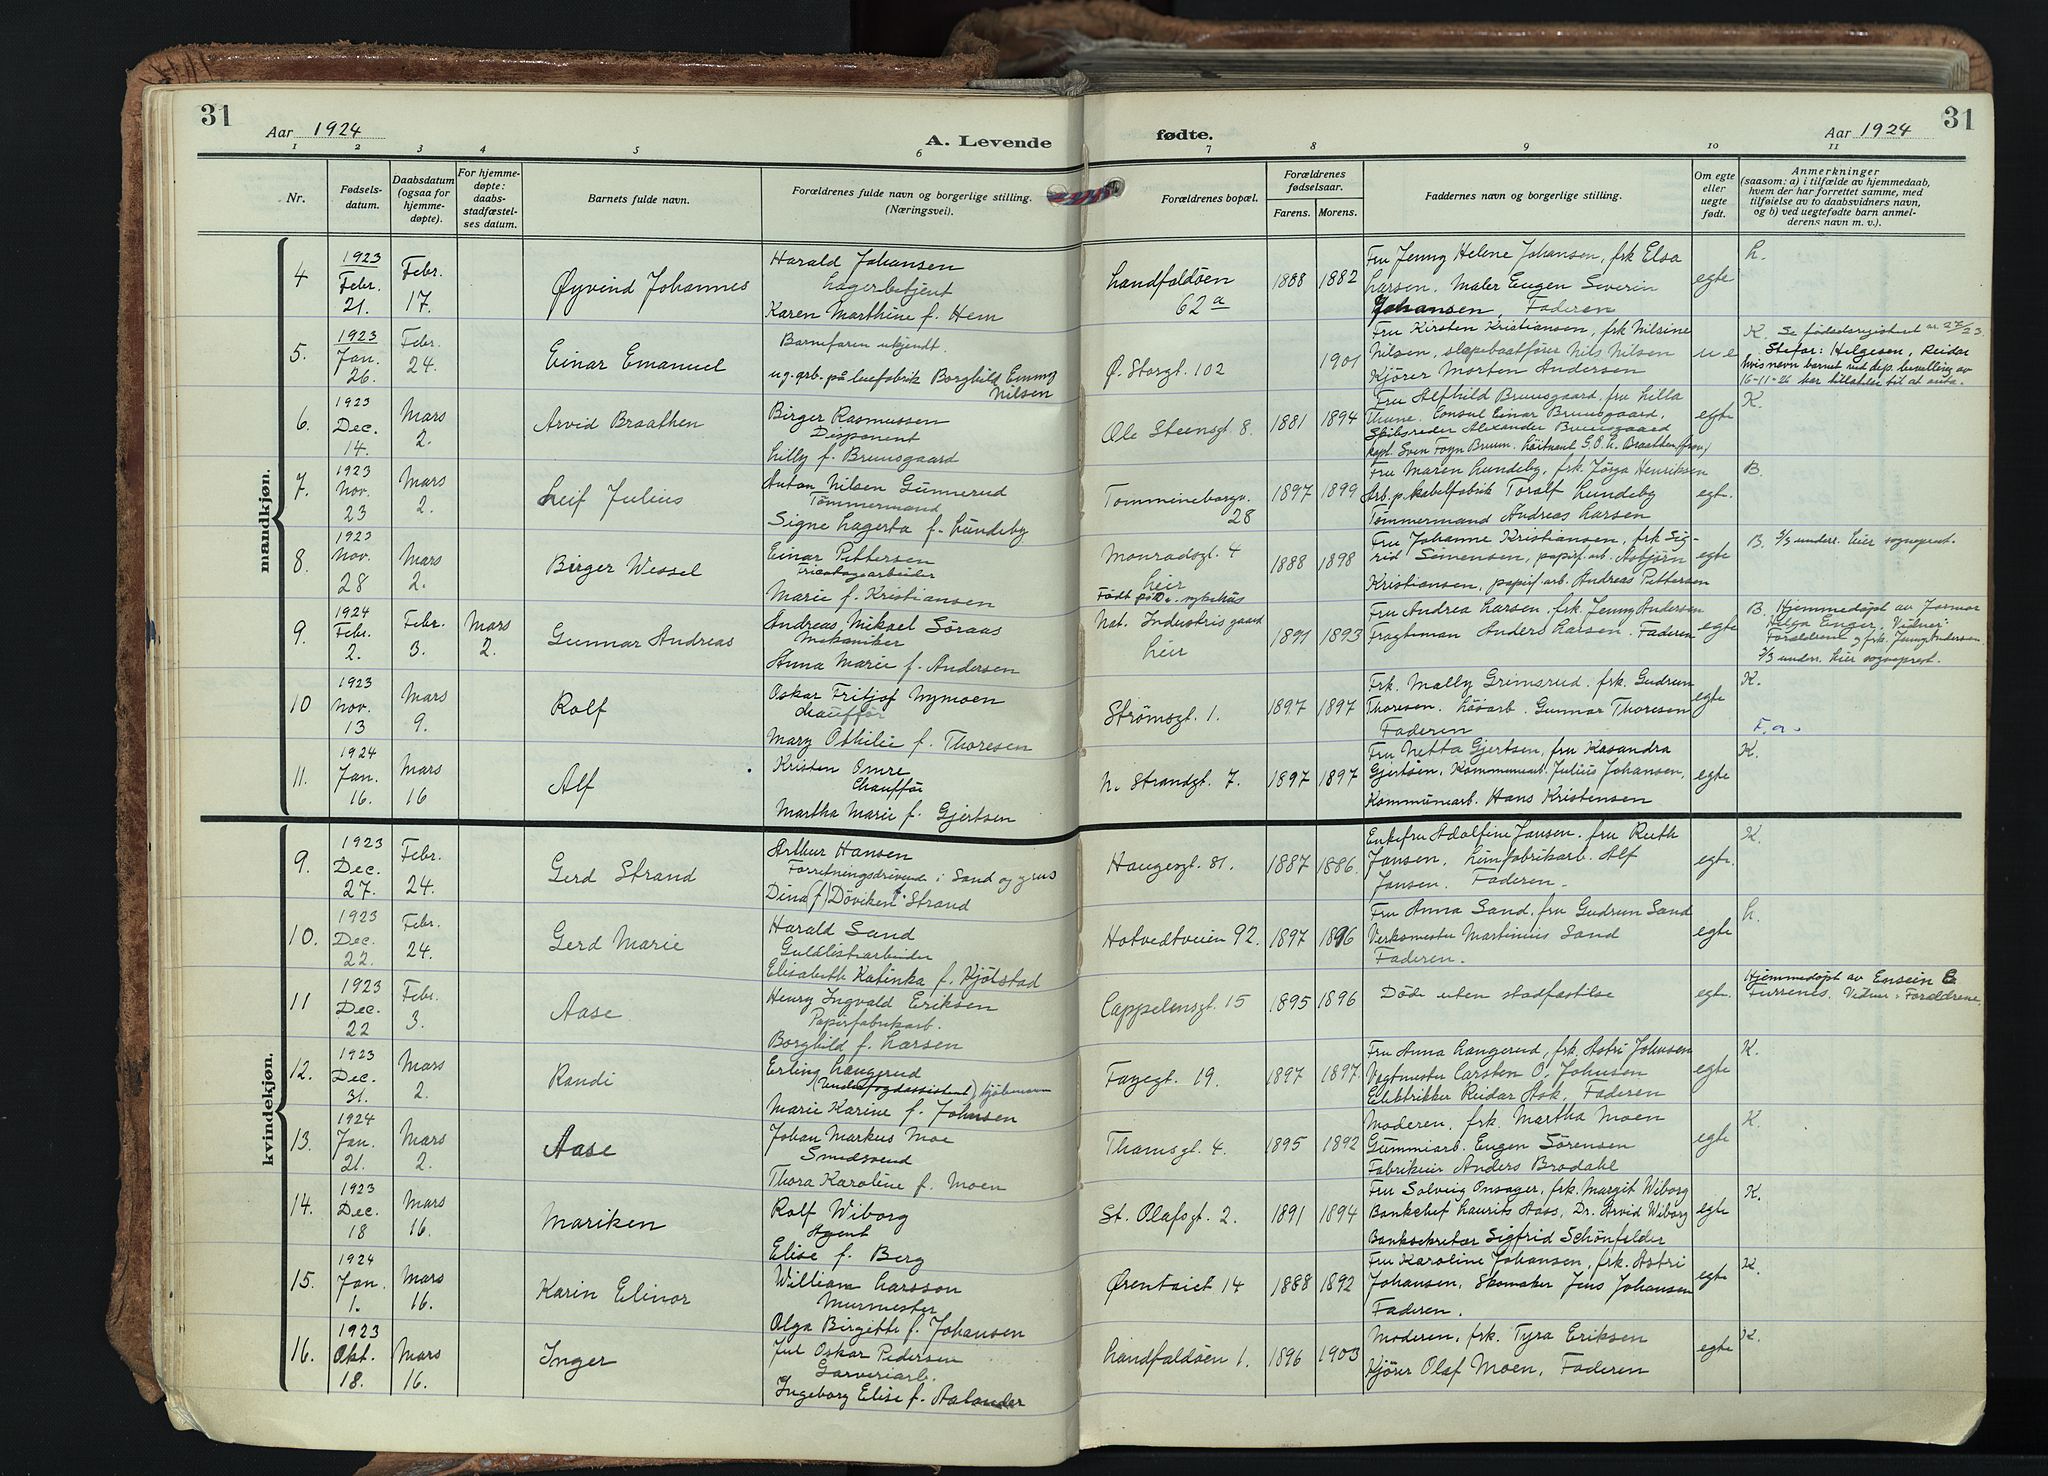 31
Aar 1924
A. Levende
fødte.
Aar 1924
31
1 2 3 4 5 6 7 8 9 10 11
Nr.
Fødsels-
datum.
Daabsdatum
(ogsaa for
hjemme-
døpte).
For hjemme-
døpte:
daabs-
stadfæstel-
ses datum.
Barnets fulde navn.
Forældrenes fulde navn og borgerlige stilling.
(Næringsvei).
Forældrenes bopæl.
Forældrenes
fødselsaar.
Farens. Morens.
Faddernes navn og borgerlige stilling.
Om egte
eller
uegte
født.
Anmerkninger
(saasom: a) i tilfælde av hjemmedaab,
hvem der har forrettet samme, med
tilføielse av to daabsvidners navn,
og b) ved uegtefødte barn anmel-
derens navn m. v.).
mandkjøn.
4
1923
Febr.
21.
Febr.
17.
Øyvind Johannes
Harald Johansen
Lagerbetjent
Karen Marthine f. Hem
Landfaldöen
62 a
1888 1882
Fru Jenny Helene Johansen, frk Elsa
Larsen. Maler Eugen Severin
Johansen, Faderen
egte
L.
5.
1923
Jan.
26.
Febr.
24.
Einar Emanuel
Barnefaren ukjendt.
ug. arb. på luefabrik Borghild Emmy
Nilsen
Ø. Storgt. 102
1901
Fru Kirsten Kristiansen, frk Nilsine
Nilsen, slæpebaatförer Nils Nilsen
Kjörer Morten Andersen
u e
K. Se födselsregisteret nr. 27/23.
Stefar: Helgesen, Reidar
hvis navn barnet ved dep. bevilling av
16-11-26 har tilladelse til at anta.
6.
1923
Dec.
14.
Mars
2.
Arvid Braathen
Birger Rasmussen
Disponent
Lilly f. Bruusgaard
Ole Steensgt. 8.
1881 1894
Fru Alfhild Bruusgaard, fru Lilla
Thune. Consul Einar Bruusgaard,
Skibsreder Alexander Bruusgaard
kapt. Sven Foyn Bruun, Löitnant G.O.L. Braathen
egte
K.
7.
1923
Nov.
23
Mars
2.
Leif Julius
Anton Nilsen Gunnerud
Tömmermand
Signe Lagerta f. Lundeby
Tommineborgv.
28
1897 1899
Fru Maren Lundeby, frk. Jörga Henriksen
Arb. p. kabelfabrik Toralf Lundeby
Tömmermand Andreas Larsen
egt.
B.
8.
1923
Nov.
28
Mars
2.
Birger Wessel
Einar Pettersen
Tricotagearbeider
Marie f. Kristiansen
Monradsgt. 4
heir
Født på D. sykehus
1888 1898
Fru Johanne Kristiansen, frk Sig-
rid Simensen, papirf. arb. Asbjörn
Kristiansen, papirf. arb. Andreas Pettersen
egte
B. 3/3 underr. hier sogneprest.
9.
1924
Febr.
2.
Febr.
3.
Mars
2.
Gunnar Andreas
Andreas Mikael Söraas
Mekaniker
Anna Marie f. Andersen
Nat. Industris gaard
heir
1891 1893
Fru Andrea Larsen. frk. Jenny Andersen
fragtman Anders Larsen. Faderen
egte
B. Hjemmedöpt av Jormor
Helga Enger, Vidner:
Forældrene og frk. Jenny Andersen
3/3 underr. hier sogneprest.
10
1923
Nov.
13
Mars
9.
Rolf
Oskar Fritjof Nymoen
chaufför
Mary Othilie f. Thoresen
Strömsgt. 1.
1897 1897
Frk. Mally Grimsrud. frk. Gudrun
Thoresen. Lövarb. Gunnar Thoresen
Faderen
egte
K.
F.a.
11.
1924
Jan.
16.
Mars
16
Alf
Kristen Omre
Chaufför
Martha Marie f. Gjertsen
N. Strandgt. 7.
1897 1897
Fru Netta Gjertsen, fru Kasandra
Gjertsen. Kommunearb. Julius Johansen,
Kommunearb. Hans Kristensen
egte
K.
kvindekjøn.
9.
1923
Dec.
27.
Febr.
24.
Gerd Strand
Arthur Hansen
Forretningsdrivende i Sand og grus
Dina (f) Döviken f. Strand
Haugesgt. 81.
1887 1886.
Enkefru Adolfine Jansen. fru Ruth
Jansen, Limfabrikarb. Alf
Jansen. Faderen.
egt.
K.
10.
1923
Dec.
22.
Febr.
24.
Gerd Marie
Harald Sand
Guldlistearbeider
Elisabeth Katinka f. Kjölstad
Hotvedtveien 92.
1897 1896
Fru Anna Sand, fru Gudrun Sand
Verksmester Martinius Sand
Faderen.
egte
L.
11
1923
Dec.
22
Febr.
3.
Aase
Henry Ingvald Eriksen
Papirfabrikarb.
Borghild f. Larsen
Cappelensgt. 15
1895 1896
Døde uten stadfæstelse
egt.
Hjemmedöpt av Ensein
Furrenes. Vidner: Forældrene.
12.
1923
Dec.
31.
Mars
2.
Randi
Erling Langerud
(Underfogdassistent) kjöbmann
Marie Karine f. Johansen
Fayegt. 19.
1897 1897.
Fru Anna Langerud, frk. Astri Johansen
Vagtmester Carsten O. Johansen
Elektrikker Reidar Ask, Faderen
egte
K.
13.
1924
Jan.
21.
Mars
2.
Aase
Johan Markus Moe
Smedsvend
Thora Karoline f. Moen
Thamsgt. 4.
1895 1892
Moderen, frk. Martha Moen
Gummiarb. Eugen Sörensen
Fabrikeier Anders Brodahl
egte
K.
14.
1923
Dec.
18
Mars
16.
Mariken
Rolf Wiborg
Agent
Elise f. Berg
St. Olafsgt. 2.
1891 1894
Fru Solveig Onsager, frk. Margit Wiborg
Bankchef Laurits Aass, Dr. Arvid Wiborg
Banksekretær Sigfrid Schönfelder
egte
K.
15.
1924
Jan.
1.
Mars
16.
Karin Elinor
William Larsson
Murmester
Olga Birgitte f. Johansen
Ørentaiet 14
1888 1892
Fru Karoline Johansen, frk. Astri
Johansen, Skomaker Jens Johansen
Faderen.
egte
K.
16.
1923
Okt.
18.
Mars
16.
Inger
Jul Oskar Pedersen
Garveriarb.
Ingeborg Elise f. Aalander
Landfaldöen 1.
1896 1903
Moderen, frk. Tyra Eriksen
Kjörer Olaf Moen, Faderen
egte
K.